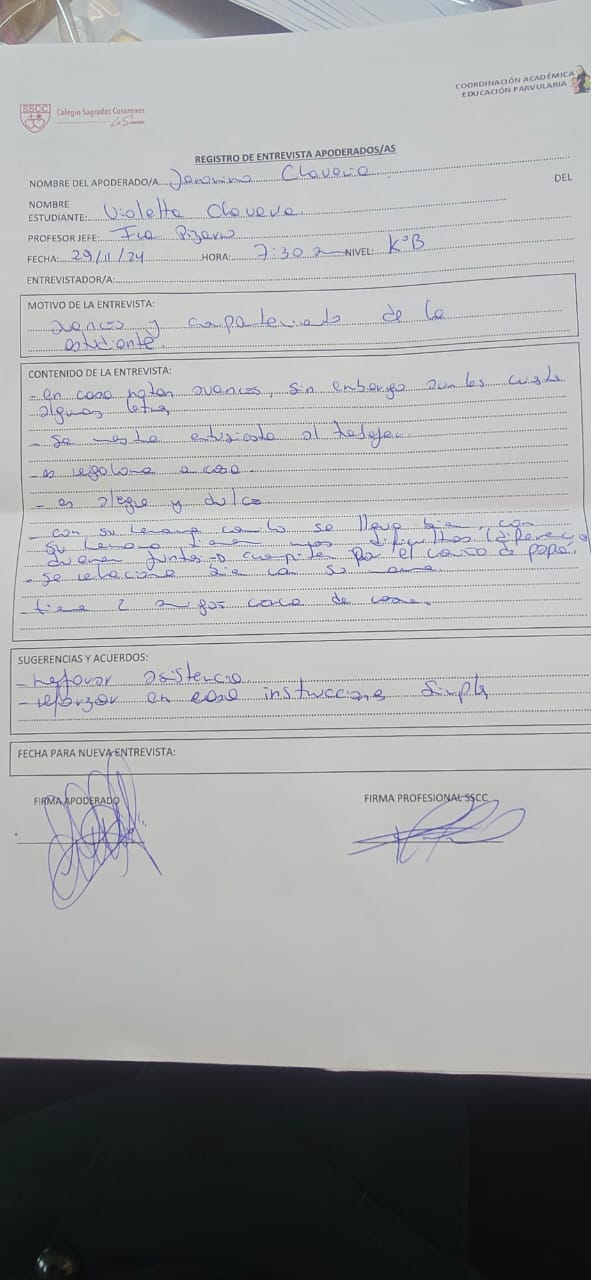 SSCC
Colegio Sagrados Corazones
La Serena
COORDINACIÓN ACADÉMICA
EDUCACIÓN PARVULARIA
REGISTRO DE ENTREVISTA APODERADOS/AS
NOMBRE DEL APODERADO/A Claveria DEL
NOMBRE
ESTUDIANTE: Violetta Claveria
PROFESOR JEFE: Fca Pizarro
FECHA: 29/11/24 HORA: 7:30 NIVEL: K°B
ENTREVISTADOR/A:
MOTIVO DE LA ENTREVISTA:
avances y de la
estudiante.
CONTENIDO DE LA ENTREVISTA:
- en casa notan avances, sin embargo aun les cuesta
algunas letras
- se entusiasta al trabajar.
- es regalona a casa.
- es alegre y dulce
- con su camilo se lleva bien, con
su tienen unos dificultades (diferencia y
duermen juntos → compiten por el cariño de papá.
- se relaciona bien con su mama.
- tiene 2 amigas cerca de casa.
SUGERENCIAS Y ACUERDOS:
- mejorar asistencia
- reforzar en casa instrucciones simples
FECHA PARA NUEVA ENTREVISTA:
FIRMA APODERADO FIRMA PROFESIONAL SSCC